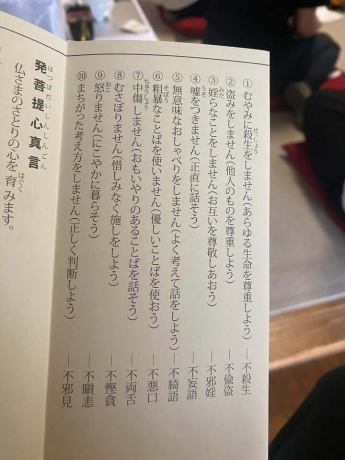 ① むやみに殺生をしません(あらゆる生命を尊重しよう) ―不殺生
② 盗みをしません(他人のものを尊重しよう) ―不偸盗
③ 婬らなことをしません(お互いを尊敬しあおう) ―不邪婬
④ 嘘をつきません(正直に話そう) ―不妄語
⑤ 無意味なおしゃべりをしません(よく考えて話をしよう) ―不綺語
⑥ 粗暴なことばを使いません(優しいことばを使おう) ―不悪口
⑦ 中傷しません(おもいやりのあることばを話そう) ―不両舌
⑧ むさぼりません(惜しみなく施しをしよう) ―不慳貪
⑨ 怒りません(にこやかに暮らそう) ―不瞋恚
⑩ まちがった考え方をしません(正しく判断しよう) ―不邪見
発菩提心真言
仏さまのさとりの心を育みます。